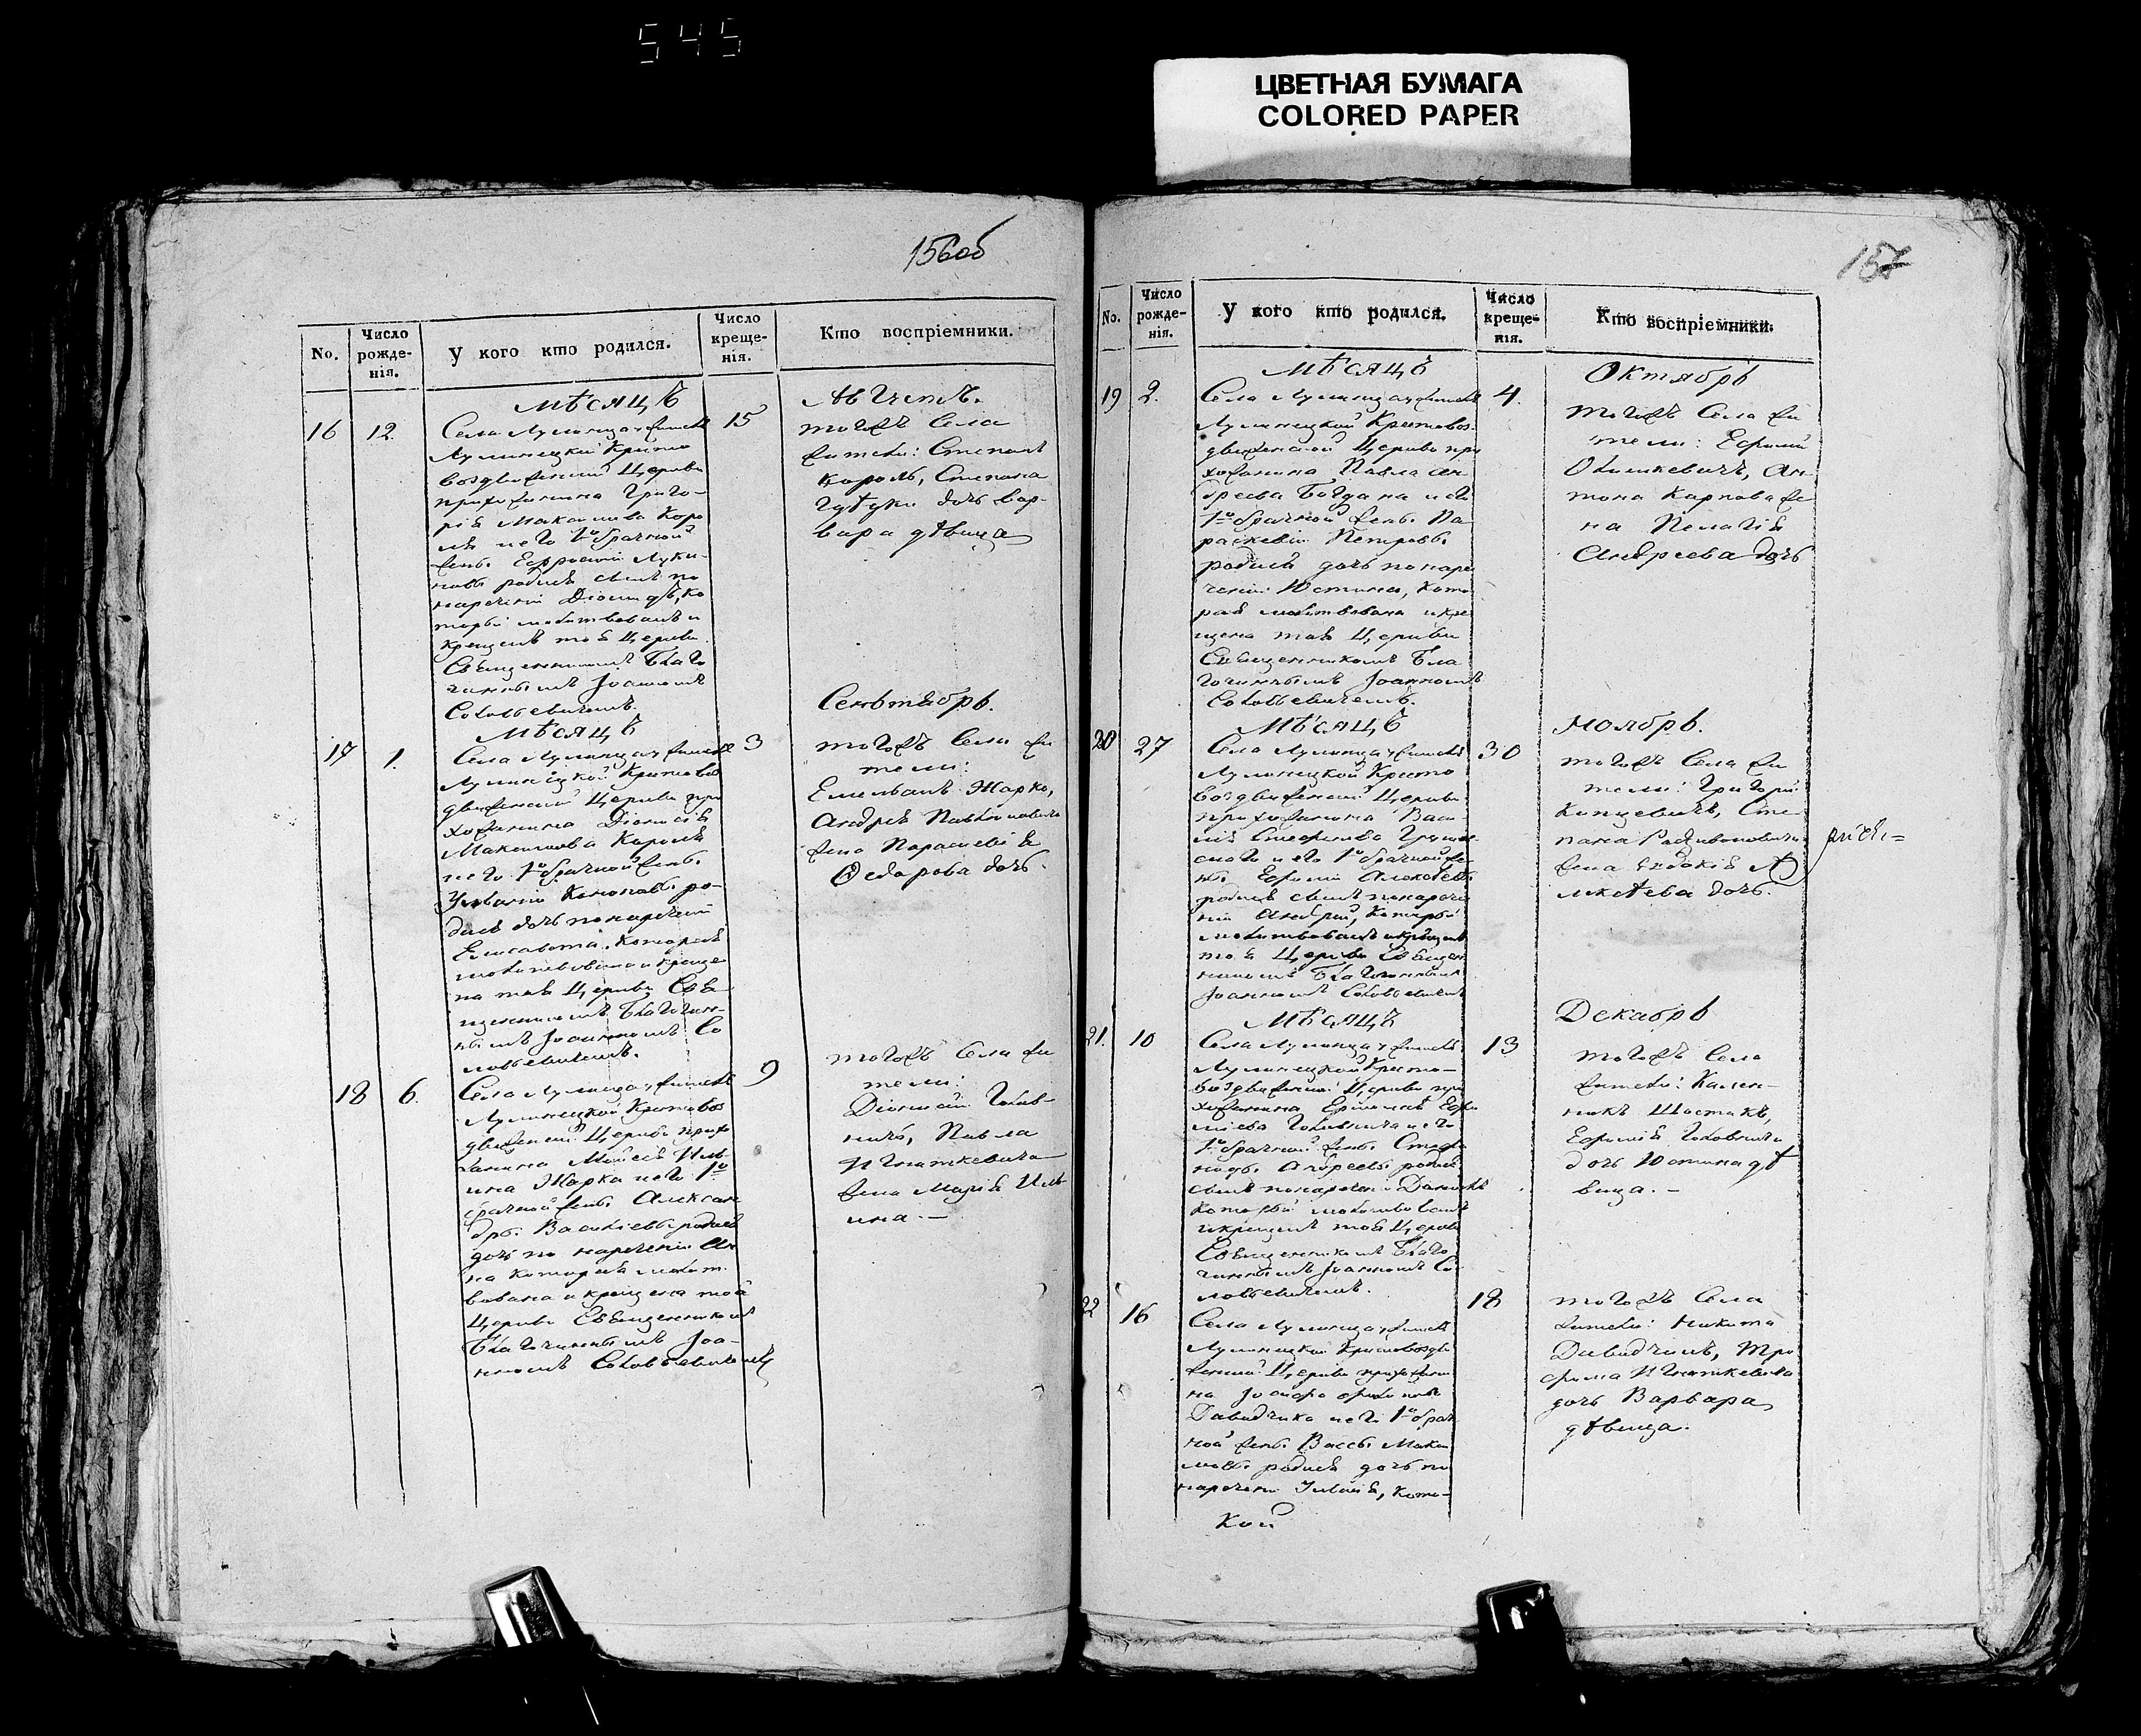 545
ЦВЕТНАЯ БУМАГА
COLORED PAPER
156об
No.
Число рожде-нія.
У кого кто родился.
Число креще-нія.
Кто воспріемники.
Мѣсяцъ
Августъ.
16
12.
Села Лулинца жителя
Лулинецкой Кресто
воздвиженской Церкви
прихожанина Григо-
рія Максимова Коро
ля и его 1о брачной
жены Ефросиніи Луки-
новы родился сынъ по
наречении Діомидъ, ко
торый молитвованъ и
крещенъ тоя Церкви
Священникомъ Благо
чиннымъ Іоанномъ
Соловьевичемъ.
15
тогожъ Села
жители: Степанъ
Король, Степана
дочь Вар-
вара дѣвица
Мѣсяцъ
Сентябрь.
17
1.
Села Лулинца жителя
Лулинецкой Крестовоз
движенской Церкви при
хожанина Діонисія
Максимова Короля
и его 1о брачной жены
Іуліаніи Кононовы ро-
дися дочь по наречении
Елисавета, которая
молитвована и креще
на тоя Церкви Свя
щенникомъ Благочин-
нымъ Іоанномъ Со
ловьевичемъ.
3
тогожъ Села жи
тели:
Емельянъ Жарко,
Андрея
жена Параскевія
Ѳедорова дочь.
18
6.
Села Лулинца жителя
Лулинецкой Крестовоз
движенской Церкви прихо
жанина Моисея Иль-
ина Жарка и его 1о
брачной жены Алексан
дры Василіевы родися
дочь по наречении Ан
на которая молит
вована и крещена тоя
Церкви Священникомъ
Благочиннымъ Іоа-
нномъ Соловьевичемъ
9
тогожъ Села жи
тели:
Діонисій Голов-
ничь, Павла
Игнаткевича
жена Марія Иль
ина. —
157
No.
Число рожде-нія.
У кого кто родился.
Число креще-нія.
Кто воспріемники.
Мѣсяцъ
Октябрь
19
2.
Села Лулинца жителя
Лулинецкой Крестовоз
движенской Церкви при
хожанина Павла Ан
дреева Богдана и его
1о брачной жены Па
раскевіи Петровы
родися дочь по наре
чении Юстина, кото
рая молитвована и кре
щена тоя Церкви
Священникомъ Бла
гочиннымъ Іоанномъ
Соловьевичемъ.
4.
тогожъ Села жи
тели: Ефимій
Ан
тона Карпова же
на Пелагія
Андреева дочь
Мѣсяцъ
Ноябрь.
20
27
Села Лулинца жителя
Лулинецкой Кресто
воздвиженской Церкви
прихожанина Васи
лія Стефанова
и его 1о брачной же
ны Ефиміи Алексѣевы
родися сынъ по нарече
ніи Андрей, который
молитвованъ и крещенъ
тоя Церкви Священ
никомъ Благочиннымъ
Іоанномъ Соловьевичемъ
30
тогожъ Села жи
тели: Григорій
Копцевичъ, Сте
пана Радивоновича
жена Евдокія А
лексѣева дочь.
Мѣсяцъ
Декабрь
21.
10
Села Лулинца жителя
Лулинецкой Кресто-
воздвиженской Церкви при
хожанина Ермолая Ефи
міева Головнича и его
1о брачной жены Стефа
ниды Андреевы родися
сынъ по наречении Даніилъ
который молитвованъ
и крещенъ тоя Церкви
Священникомъ Благо
чиннымъ Іоанномъ Со
ловьевичемъ.
13
тогожъ Села
жители: Кален-
никъ Шостакъ,
Ефимія Головнича
дочь Юстина дѣ
вица. —
22
16
Села Лулинца жителя
Лулинецкой Крестовоздви
женской Церкви прихожани
на Іосифа
Давидчика и его 1о брач
ной жены Вассы Макси
мовы родися дочь по
наречении Іулія, кото-
18
тогожъ Села
жители: Никита
Давидчикъ, Тро
фима Игнаткевича
дочь Варвара
дѣвица.
Кой